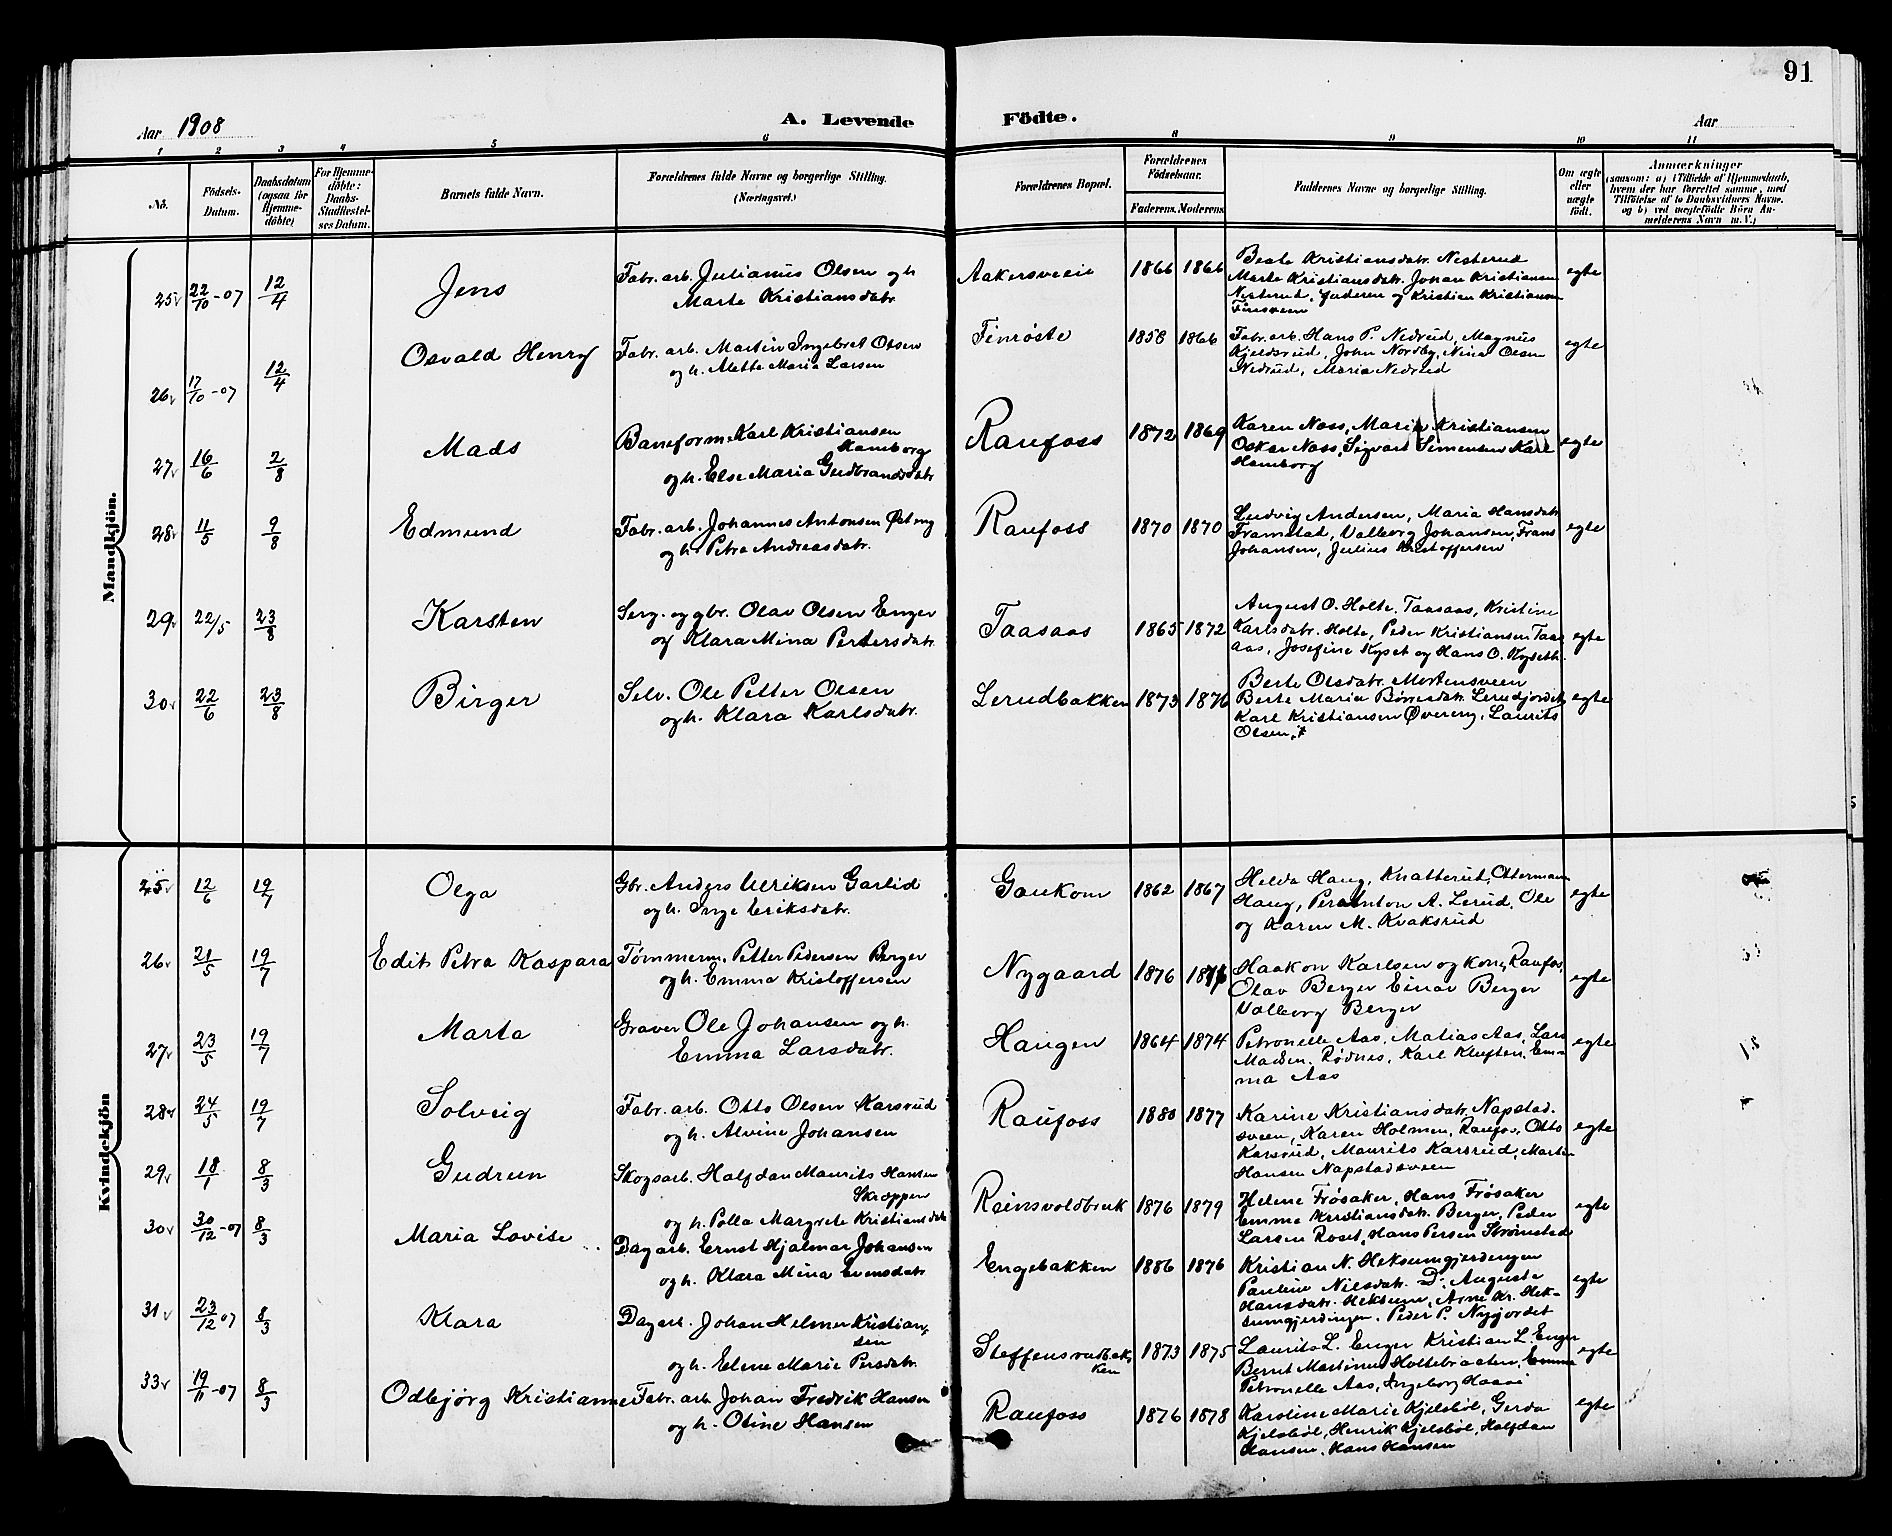 91
Aar 1908
A. Levende Födte.
Aar
1 2 3 4 5 6 8 9 10 11
No.
Födsels-Datum.
Daabsdatum (ogsaa for Hjemme-döbte)
For Hjemme-döbte: Daabs-Stadfæstel-ses Datum.
Barnets fulde Navn.
Forældrenes fulde Navne og borgerlige Stilling.
(Næringsvei.)
Forældrenes Bopæl.
Forældrenes Födselsaar.
Faderens. Moderens.
Faddernes Navne og borgerlige Stilling.
Om ægte eller uægte födt.
Anmærkninger
(saasom: a) i Tilfælde af Hjemmedaab,
hvem der har forrettet samme, med
Tilföielse af to Daabsvidners Navne.
og b) ved uægtefödte Börn An-
melderens Navn m. V.)
Mandkjön.
25 22/10-07 12/4 Jens
Fabr. arb. Julianus Olsen og h
Marte Kristiansdatr.
Aakersveen 1866 1866
Beate Kristiansdatr. Nesterud
Marte Kristiansdatr. Johan Kristiansen
Nesterud, og Kristian Kristiansen
egte
26 17/10-07 12/4 Osvald Henry
Fabr. arb. Martin Ingebret Olsen
og h. Mathe Maria Larsen
Finröste 1858 1866
Fabr. arb. Hans P. Nedrud, Magnus
Kjeldsrud, John Nordby, Nina Olsen
Nedrud, Maria Nedrud
egte
27 16/6 2/8 Mads
Baneform. Karl Kristiansen
Hamborg
og h. Else Maria Gudbrandsdatr
Raufoss 1872 1869
Karen Nass, Marie Kristiansen
Oskar Nass, Sigvart Simensen Karl
Hamborg
egte
28 11/5 9/8 Edmund
Fabr. arb. Johannes Antonsen Østeng
og h. Petra Andreasdatr.
Raufoss 1870 1870
Ludvig Andersen, Maria Hansdatr
Framstad, Valborg Johansen, Frans
Johansen, Julius Kristoffersen
egte
29 22/5 23/8 Karsten
Serg. og gbr. Olav Olsen Enger
og Klara Mina Pertersdatr.
Taasaas 1865 1872
August O. Holte, Taasaas, Kristine
Karlsdatr. Holte, Peder Kristiansen Taas
aas, Josefine Kyset og Hans O. Kyseth.
egte
30 22/6 23/8 Birger
Selv. Ole Petter Olsen
og h. Klara Karlsdatr.
Lerudbakken 1873 1876
Berte Olsdatr. Mortensveen
Berte Maria Børresdatr. Lerudjordet,
Karl Kristiansen Övereng, Laurits
Olsen
egte
Kvindekjön
25 12/6 19/7 Olga
Gbr. Anders Ulriksen Garlid
og h. Inge Eriksdatr.
Gaukom 1862 1867
Helda Haug, Knatterud, Otterman
Haug, Per Anton A. Lerud, Ole
og Karen M. Kvaksrud
egte
26 21/5 19/7 Edit Petra Kaspara
Tømmerm. Petter Pedersen Berger
og h. Emma Kristoffersen
Nygaard 1876
Haakon Karlsen og kone, Raufos,
Olav Berger Einar Berger
Valborg Berger
egte
27 23/5 19/7 Marta
Graver Ole Johansen og h.
Emma Larsdatr.
Haugen 1864 1874
Petronelle Aas, Matias Aas, Lars
Madsen, Rødnes, Karl Kluften, Em-
ma Aas
egte
28 24/5 19/7 Solveig
Fabr. arb. Otto Olsen Karsrud
og h. Alvine Johansen
Raufoss 1880 1877
Karine Kristiansdatr. Napstad-
sveen, Karen Holmen, Raufos, Otto
Karsrud, Maurits Karsrud, Martin
Hansen Napstadsveen
egte
29 18/1 8/3 Gudrun
Skogsarb. Halfdan Maurits Hansen
Skroppen
og h. Polla Margrete Kristiansdatr
Reinsvoldbruk 1876 1879
Helene Frøsaker, Hans Frøsaker
Emma Kristiansdatr. Berger, Peder
Larsen Roset, Hans Persen Strømstad
egte
30 30/12-07 8/3 Maria Lovise
Dagarb. Ernst Hjalmar Johansen
og h. Klara Mina Evensdatr
Engebakken 1886 1876
Kristian N. Heksumgjerdingen
Pauline Nilsdatr. Do. Auguste
Hansdatr. Heksum, Arne Kr. Hek-
sumgjerdingen, Peder P. Nygjordet
egte
31 23/12 07 8/3 Klara
Dagarb. Johan Helmer Kristian-
sen
og h. Elene Marie Persdatr.
Steffensrudbak-
ken 1873 1875
Laurits L. Enger Kristian L. Enger
Bernt Martinus Holtebraaten, Emma
Petronelle Aas, Ingeborg
egte
33 19/11-07 8/3 Odbjörg Kristianne
Fabr. arb. Johan Fredrik Hansen
og h. Otine Hansen
Raufoss 1876 1878
Karoline Marie Kjelsböl, Gerda
Kjelsböl, Henrik Kjelsböl, Halfdan
Hansen, Hans Hansen
egte